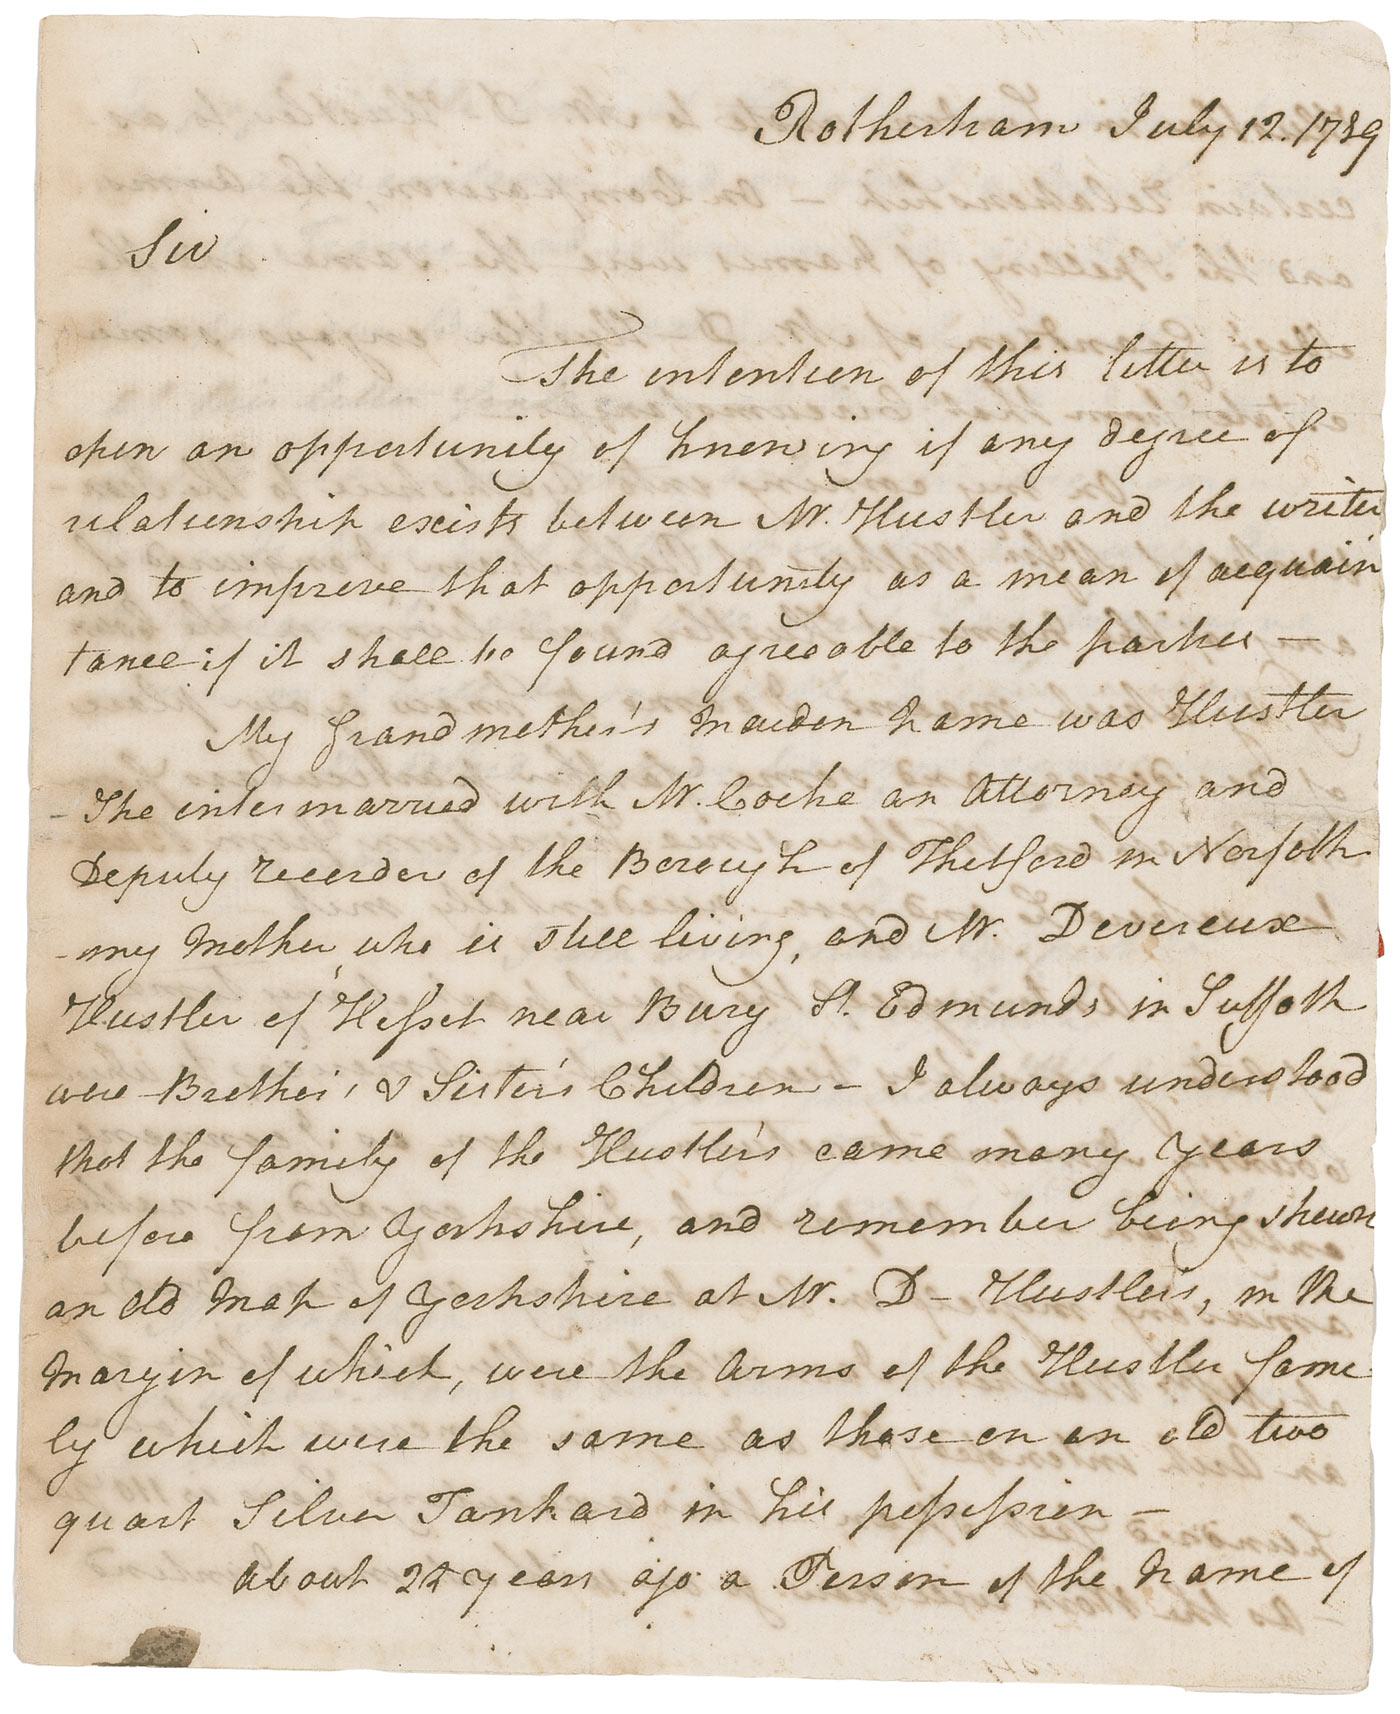 Rotherham July 12. 1789
Sir
The intention of this letter is to
open an opportunity of knowing if any degree of
relationship exists between Mr. Hustler and the writer
and to improve that opportunity as a mean of acquain
tance if it shall be found agreeable to the parties —
My Grandmother's Maiden Name was Hustler
- She intermarried with Mr. Cocke an Attorney and
Deputy recorder of the Borough of Thetford in Norfolk
- my Mother, who is still living, and Mr. Devereux
Hustler of Hesset near Bury St. Edmunds in Suffolk
were Brother's & Sister's Children - I always understood
that the family of the Hustler's came many years
before from Yorkshire, and remember being shewn
an old Map of Yorkshire at Mr. D- Hustlers, in the
Margin of which, were the Arms of the Hustler fami
ly which were the same as those on an old two
quart Silver Tankard in his possession —
About 24 years ago a Person of the Name of